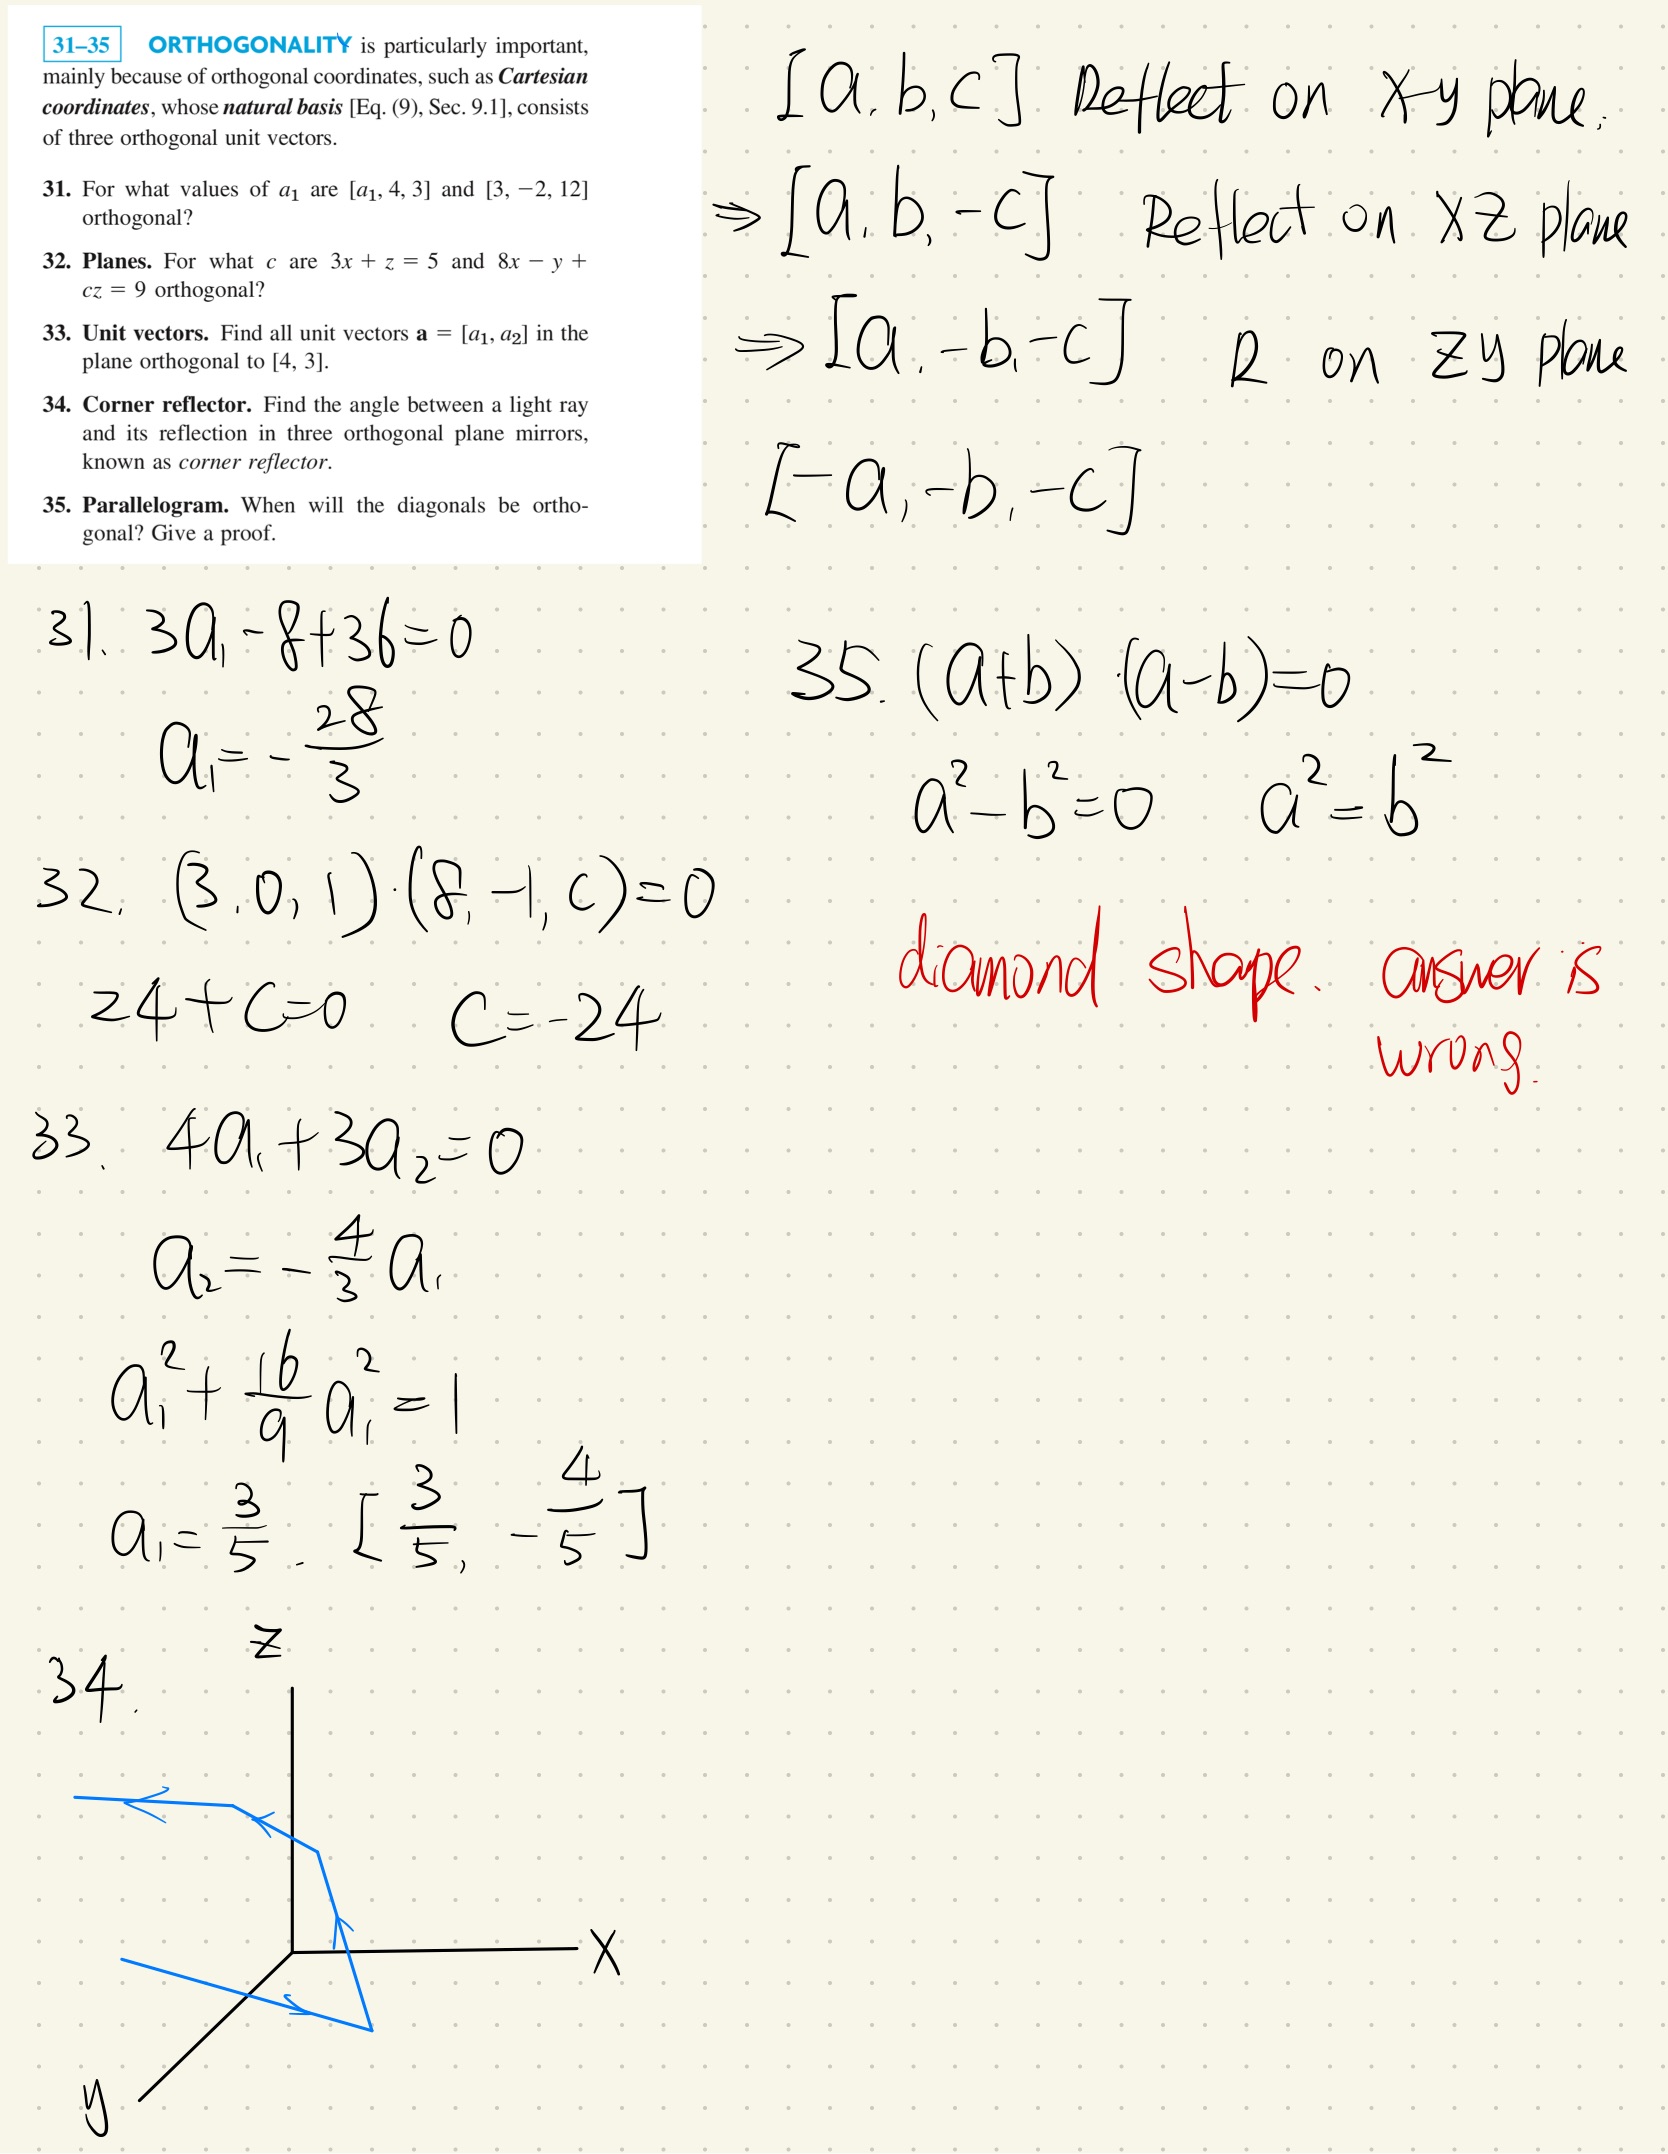 31–35 ORTHOGONALITY is particularly important,
mainly because of orthogonal coordinates, such as Cartesian
coordinates, whose natural basis [Eq. (9), Sec. 9.1], consists
of three orthogonal unit vectors.
31. For what values of a₁ are [a₁, 4, 3] and [3, −2, 12]
orthogonal?
32. Planes. For what c are 3x + z = 5 and 8x − y +
cz = 9 orthogonal?
33. Unit vectors. Find all unit vectors a = [a₁, a₂] in the
plane orthogonal to [4, 3].
34. Corner reflector. Find the angle between a light ray
and its reflection in three orthogonal plane mirrors,
known as corner reflector.
35. Parallelogram. When will the diagonals be ortho-
gonal? Give a proof.
[a, b, c] Reflect on x-y plane.
⇒ [a, b, -c] Reflect on XZ plane
⇒ [a, -b, -c] R on ZY plane
[-a, -b, -c]
31. 3a₁ - 8 + 36 = 0
a₁ = - 28/3
32. (3, 0, 1) · (8, -1, c) = 0
24 + c = 0 c = -24
33. 4a₁ + 3a₂ = 0
a₂ = - 4/3 a₁
a₁² + 16/9 a₁² = 1
a₁ = 3/5. [3/5, - 4/5]
34.
Z
X
y
35. (a+b) · (a-b) = 0
a² - b² = 0 a² = b²
diamond shape. answer is
wrong.